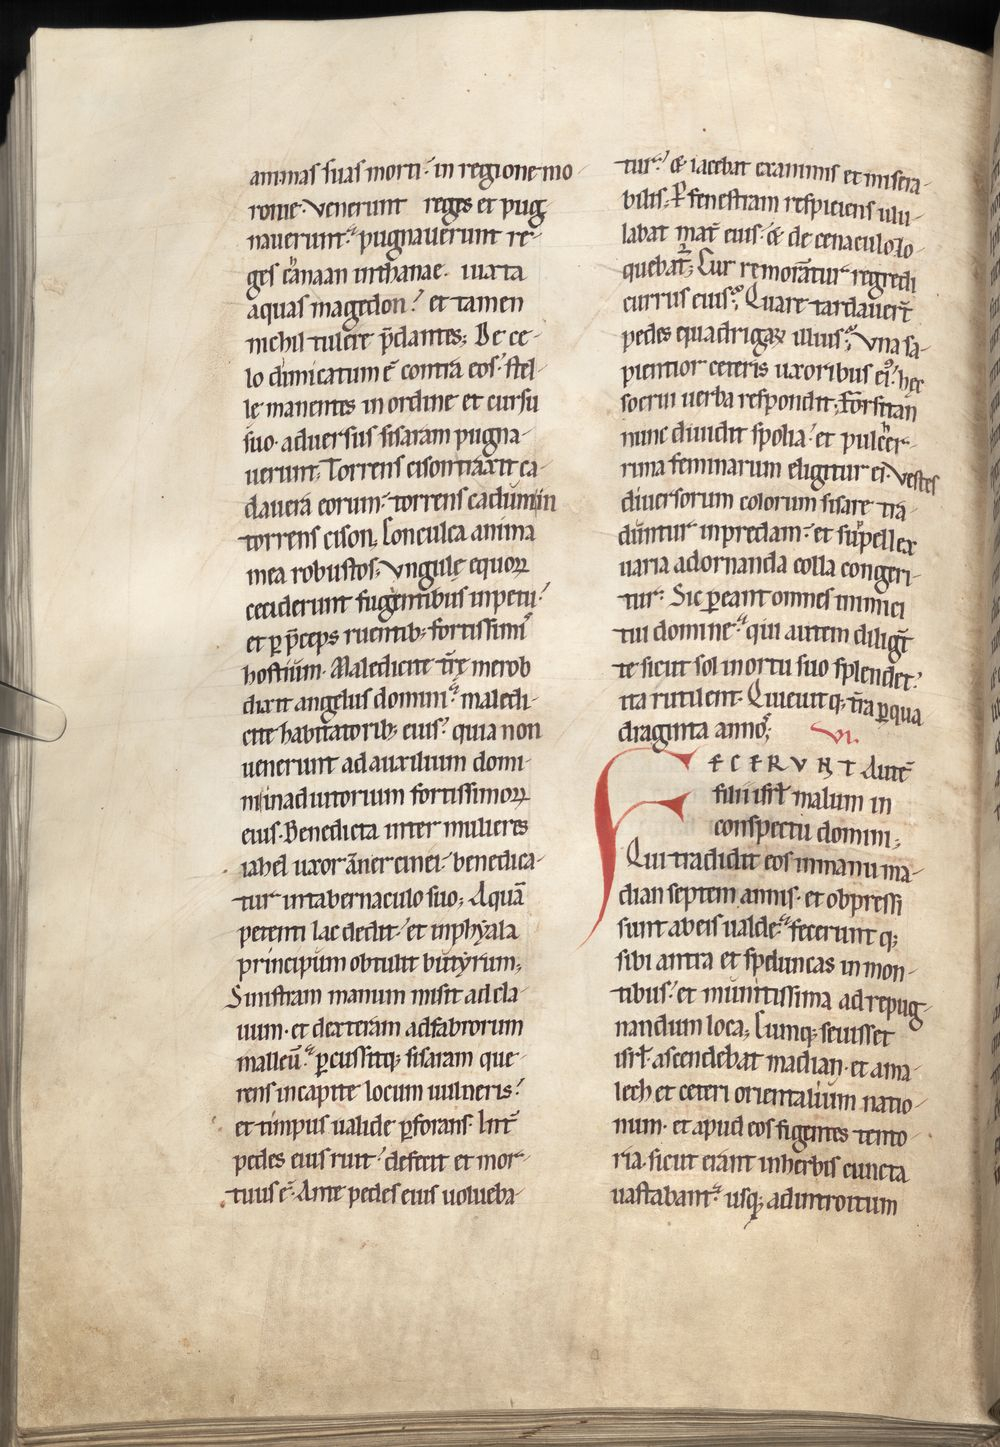 animas suas morti· in regione mo-
rome· Venerunt reges et pug
nauerunt· pugnauerunt re-
ges chanaan inthanac· iuxta
aquas magedon· et tamen
nichil tulere p̄dantes; De ce-
lo dimicatum ē contra eos· stel-
lę manentes in ordine et cursu
suo· aduersus sisaram pugna-
uerunt; Torrens cison traxit ca-
dauera eorum· torrens cadumin
torrens cison; Conculca anima
mea robustos; Vngulę equoꝝ
ceciderunt fugientibus inpetu·
et ꝑ p̄ceps ruentib; fortissimi
hostium· Maledicite tr̄ę merob
dixit angelus domini· maledi-
cite habitatorib; eius· quia non
uenerunt ad auxilium domi-
ni inadiutorium fortissimoꝝ
eius· Benedicta inter mulieres
iahel uxor aner cinei· benedica-
tur intabernaculo suo; Aquā
petenti lac dedit· et inphyala
principum obtulit butyrum;
Sinistram manum misit ad cla-
uum· et dexteram adfabrorum
malleū· ꝑcussitq; sisaram que-
rens incapite locum uulneris·
et timpus ualide ꝑforans· Int̄
pedes eius ruit· defecit et mor-
tuus ē· Ante pedes eius uolueba-
tur· & iacebat exanimis et misera-
bilis; Ꝑ fenestram respiciens ulu-
labat mat̄ eius· & de cenaculo lo-
quebat̄; Cur remorat̄ur regredi
currus eius; Quare tardauer̄t
pedes quadrigaꝝ illius; Vna sa-
pientior ceteris uxoribus ei᷒· hec
socrui uerba respondit; Forsitan
nunc diuidit spolia· et pulcher-
rima feminarum eligitur ei· Vestes
diuersorum colorum sisare tra-
duntur inpredam· et supellex
uaria adornanda colla congeri-
tur· Sic pereant omnes inimici
tui domine· qui autem diligt̄
te sicut sol in ortu suo splendet·
ita rutilent· Quieuitq; tr̄a ꝑ qua
draginta annos; VI.
FECERVNT Autē
filii isrl̄ malum in
conspectu domini;
Qui tradidit eos inmanu ma-
dian septem annis· et obpressi
sunt abeis ualde· fecerunt q;
sibi antra et speluncas in mon-
tibus· et munitissima ad repug-
nandum loca; Cumq; seuisset
isrl̄ ascendebat madian· et ama-
lech et ceteri orientalium natio-
num· et apud eos figentes tento-
ria· sicut erant inherbis cuncta
uastabant· usq; adintroitum